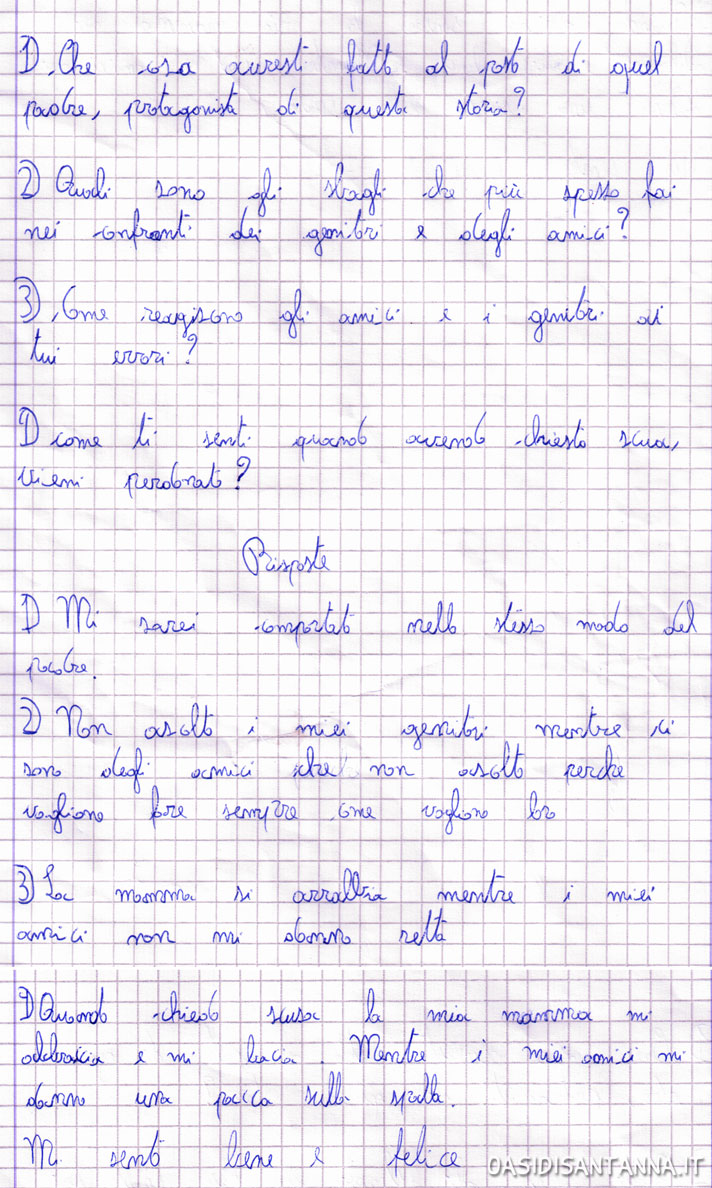 1) Che cosa avresti fatto al posto di quel
padre, protagonista di questa storia?
2) Quali sono gli sbagli che più spesso fai
nei confronti dei genitori e degli amici?
3) Come reagisono gli amici e i genitori ai
tui errori?
1) come ti senti quando avendo chiesto scusa,
vieni perdonato?
Risposte
1) Mi sarei comportato nello stesso modo del
padre.
2) Non ascolto i miei genitori mentre ci
sono degli amici che non ascolto perche
vogliono fare sempre come vogliono loro
3) La mamma si arrabbia mentre i miei
amici non mi danno retta
1) Quando chiedo scusa la mia mamma mi
abbraccia e mi bacia. Mentre i miei amici mi
danno una pacca sulla spalla.
Mi sento bene e felice
OASIDISANTANNA.IT